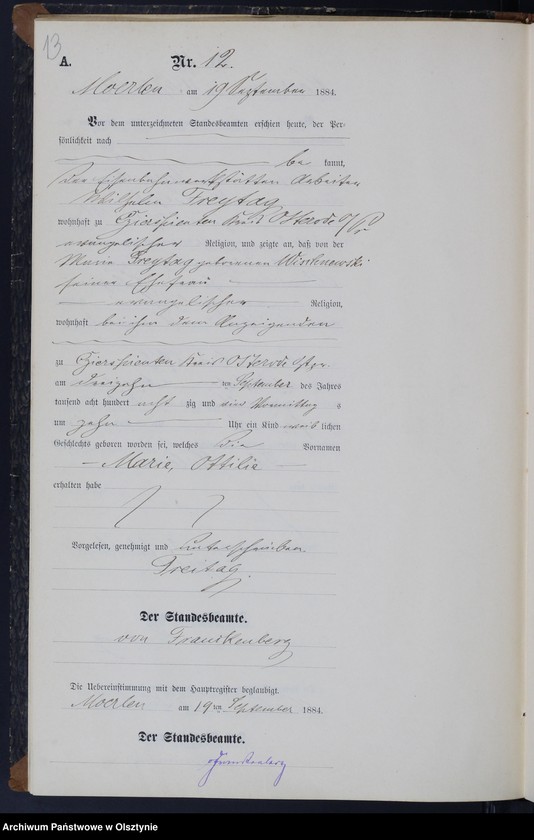 13
A.
Nr. 12.
Moerlen am 19 September 1884.
Vor dem unterzeichneten Standesbeamten erschien heute, der Per-
sönlichkeit nach
be kannt,
der Eisenbahnwerkstätten Arbeiter
Wilhelm Freytag
wohnhaft zu Kreis Osterode O/Pr
evangelischer Religion, und zeigte an, daß von der
Marie Freytag geborenen Wischnewski
seiner Ehefrau
evangelischer Religion,
wohnhaft bei ihm dem Anzeigenden
zu Kreis Osterode O/pr.
am dreizehn ten September des Jahres
tausend acht hundert acht zig und vier Vormittag s
um zehn Uhr ein Kind weib lichen
Geschlechts geboren worden sei, welches die Vornamen
Marie, Ottilie
erhalten habe
Vorgelesen, genehmigt und unterschrieben
Freitag
Der Standesbeamte.
von Frankenberg
Die Uebereinstimmung mit dem Hauptregister beglaubigt.
Moerlen am 19 ten September 1884.
Der Standesbeamte.
Frankenberg
Archiwum Państwowe w Olsztynie